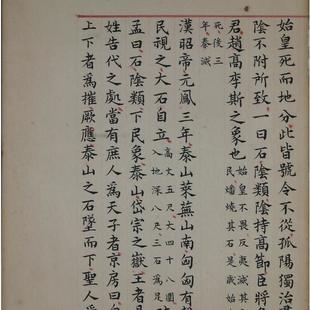 始皇死而地分此皆號令不從孤陽獨治
陰不附所致一曰石陰類陰持高節臣將
君趙高李斯之象也始皇不畏反夷滅其
民燔燒其石是歲始
死後三
年秦滅
漢昭帝元鳳三年泰山萊蕪山南匈匈有
民視之大石自立高丈五尺大四十八圍
入地深八尺三石爲足
孟曰石陰類下民象泰山岱宗之嶽王者
姓告代之處當有庶人爲天子者京房曰
上下者爲摧厥應泰山之石墜而下聖人